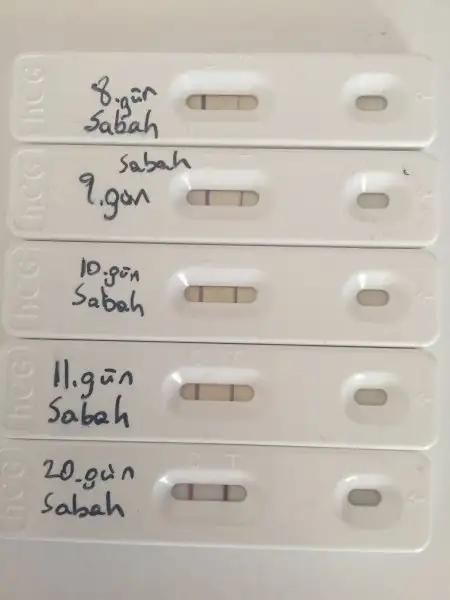 hCG
8.gün
Sabah
hCG
Sabah
9.gün
hCG
10.gün
Sabah
hCG
C T
11.gün
Sabah
hCG
C T
20.gün
Sabah